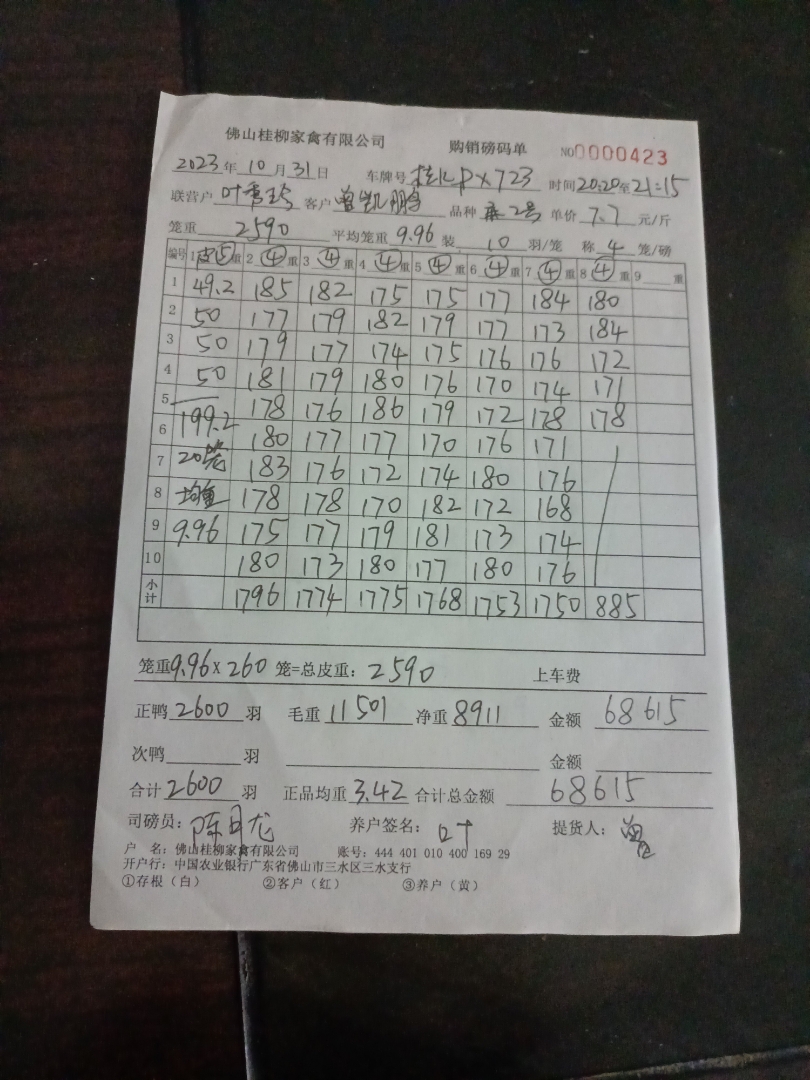 佛山桂柳家禽有限公司 购销磅码单 NO0000423
2023年10月31日 车牌号 桂KPX723 时间20:20至21:15
联营户 叶 客户 曾凯鹏 品种 麻2号 单价 7.7 元/斤
笼重 2590 平均笼重 9.96 装 10 羽/笼 称 4 笼/磅
编号 1 皮⑤重 2 ④重 3 ④重 4 ④重 5 ④重 6 ④重 7 ④重 8 ④重 9 重
1 49.2 185 182 175 175 177 184 180
2 50 177 179 182 179 177 173 184
3 50 179 177 174 175 176 176 172
4 50 181 179 180 176 170 174 171
5 178 176 186 179 172 178 178
6 199.2 180 177 177 170 176 171
7 20笼 183 176 172 174 180 176
8 均重 178 178 170 182 172 168
9 9.96 175 177 179 181 173 174
10 180 173 180 177 180 176
小计 1796 1774 1775 1768 1753 1750 885
笼重9.96x260 笼=总皮重：2590 上车费
正鸭 2600 羽 毛重 11501 净重 8911 金额 68615
次鸭 羽 金额
合计 2600 羽 正品均重 3.42 合计总金额 68615
司磅员：陈月龙 养户签名：叶 提货人：曾
户 名：佛山桂柳家禽有限公司 账号：444 401 010 400 169 29
开户行：中国农业银行广东省佛山市三水区三水支行
①存根（白） ②客户（红） ③养户（黄）